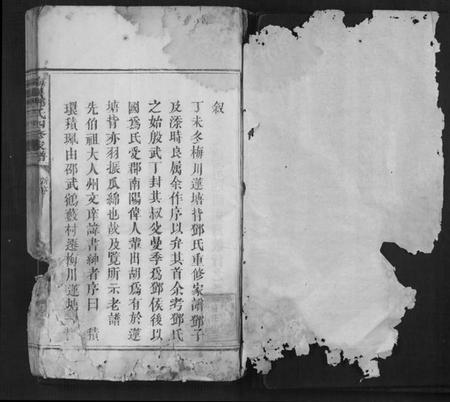 叙
丁未冬梅川蓮塘背鄧氏重修家譜鄧子
及滐時良属余作序以弁其首余考鄧氏
之始殷武丁封其叔父曼季爲鄧侯後以
國爲氏爰郡南陽偉人輩出胡爲有於蓮
塘背亦羽振瓜綿也故及覧所示老譜
先伯祖大人州文庠諱書紳者序曰 積
環積珮由邵武鶴薮村遷梅川蓮塘
氏四修